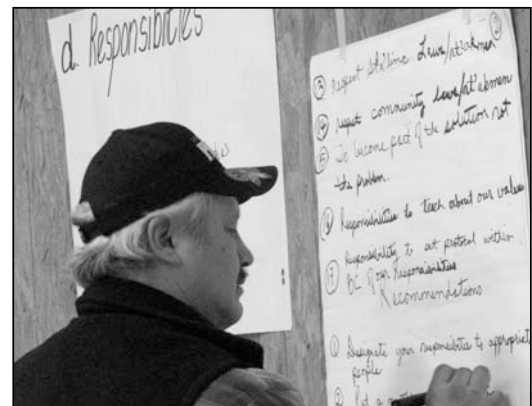 d. Responsibilities
②
⑬ respect St'át'imc Laws/nt'akmen
⑭ respect community laws/nt'akmen
⑮ To become part of the solution not
the problem.
⑯ Responsibilities to teach about our values
⑰ Responsibility to set protocol within
BC of our Responsibilities
Recommendations
① Designate your responsibilities to appropriate
people
② Put a